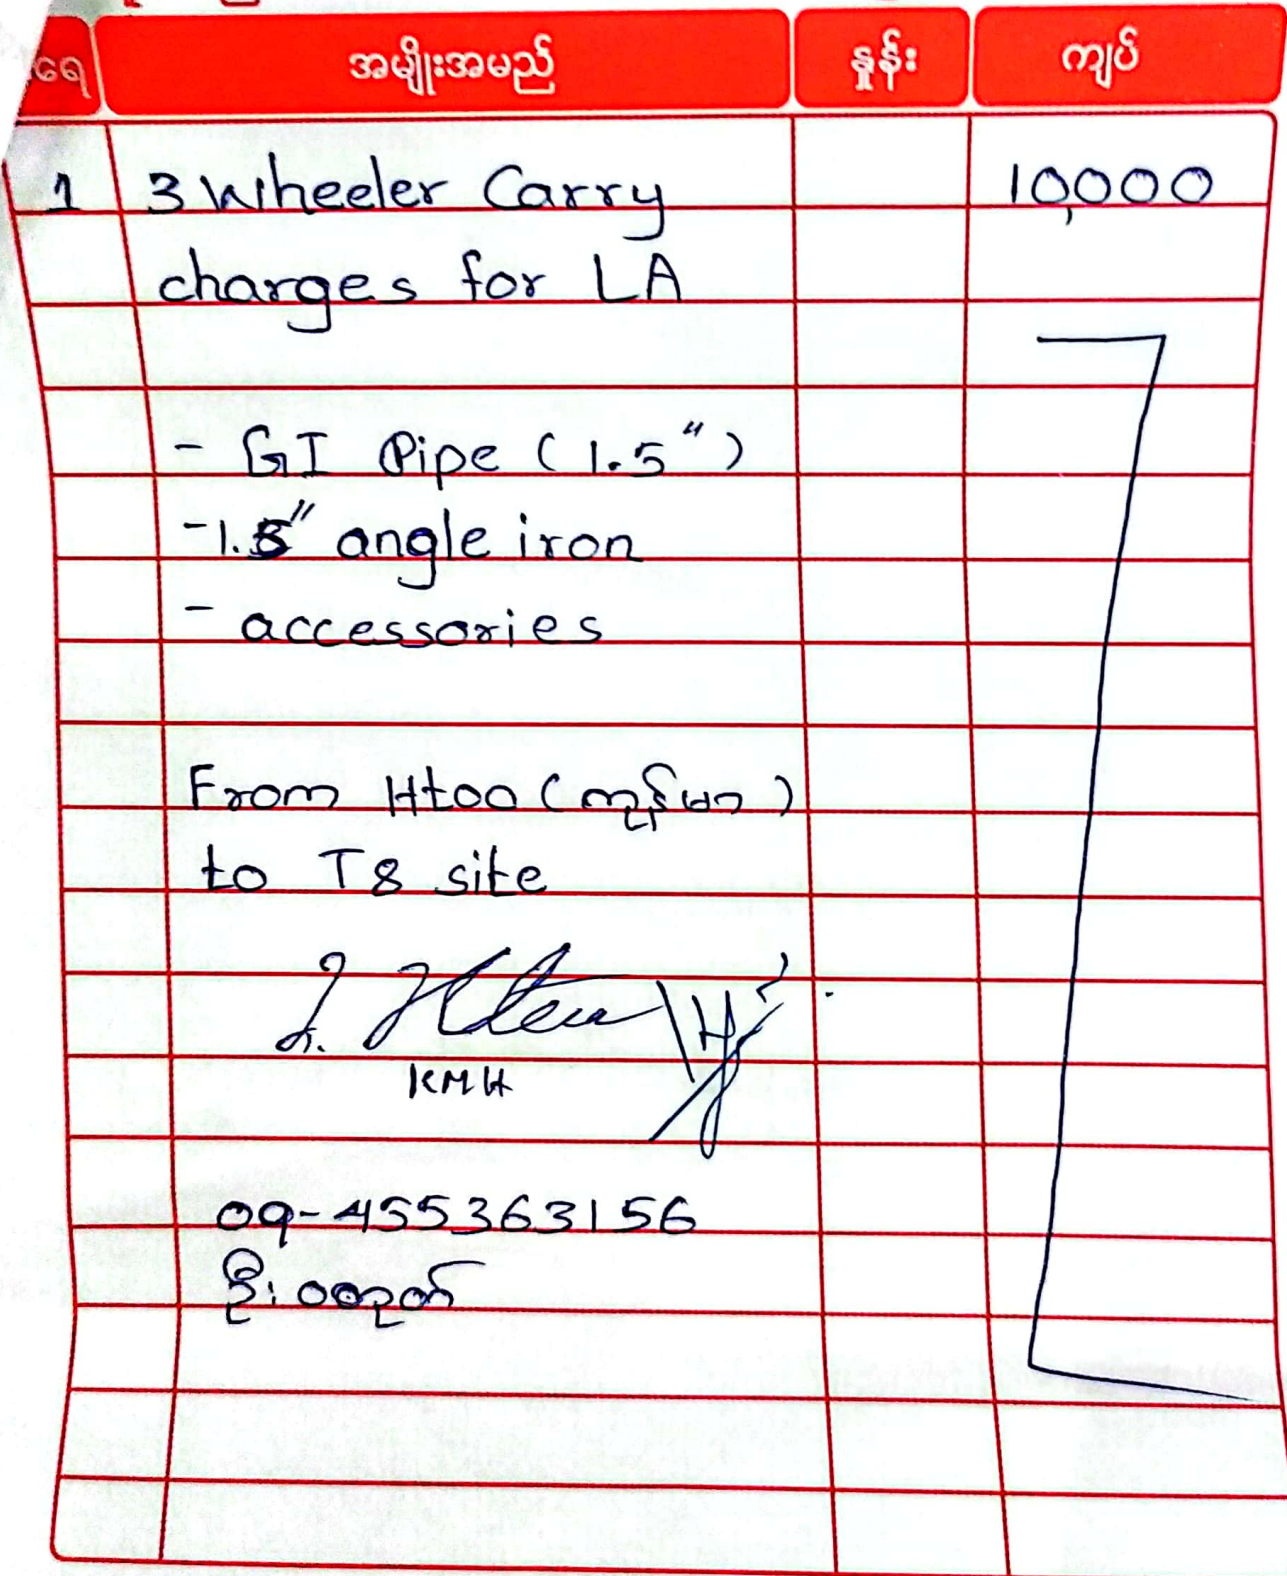 ရေ အမျိုးအမည် နှုန်း ကျပ်
1 3 Wheeler Carry 10,000
charges for LA
- GI Pipe (1.5")
- 1.5" angle iron
- accessories
From Htoo (ကုန်မာ)
to T8 site
KMH
09-455363156
ဦး